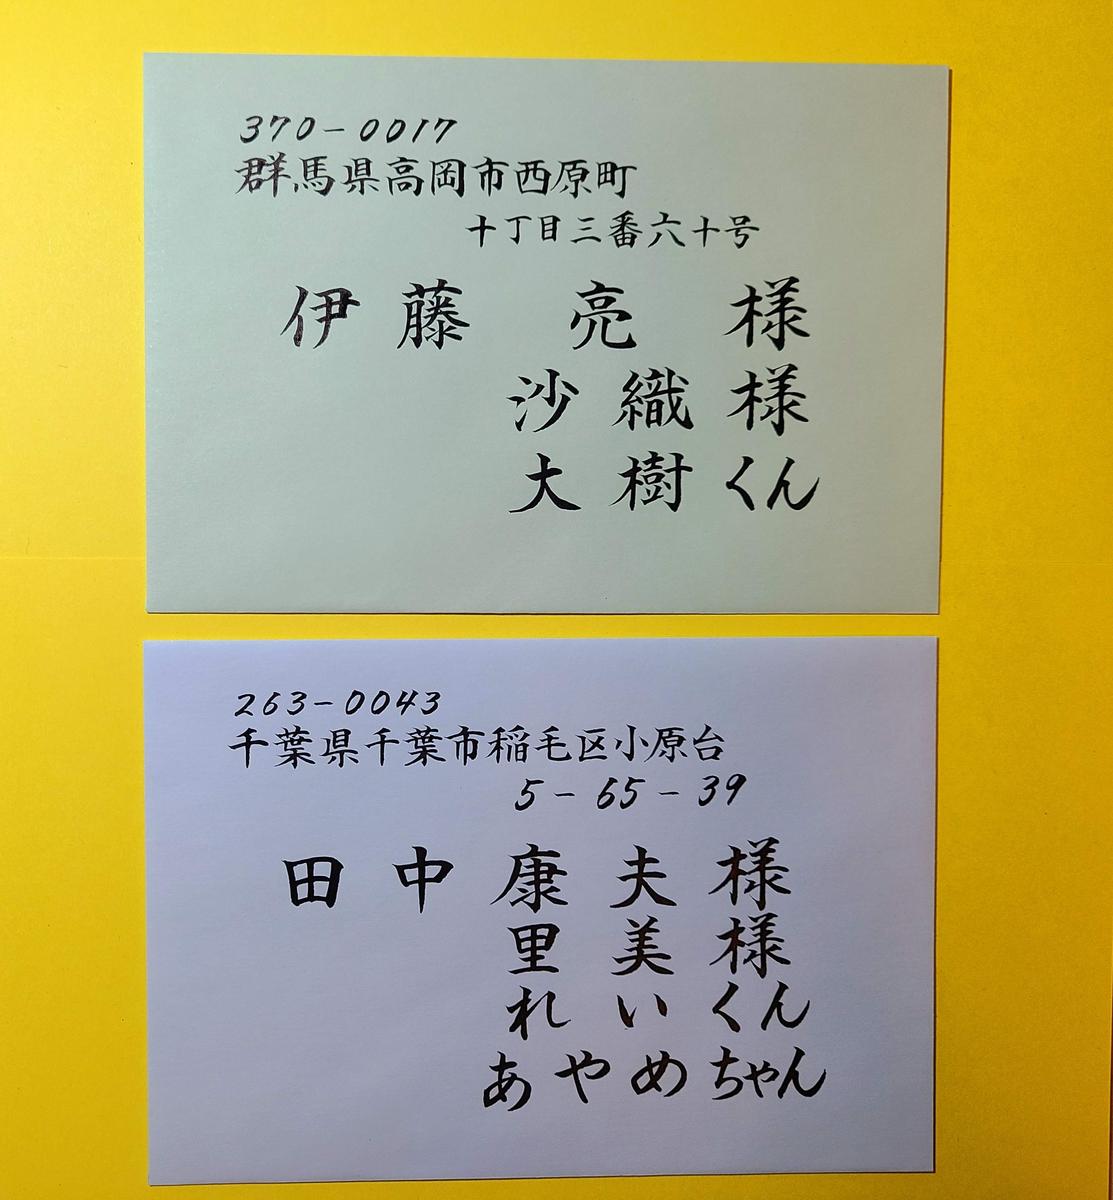 370-0017
群馬県高岡市西原町
十丁目三番六十号
伊藤 亮 様
沙織様
大樹くん
263-0043
千葉県千葉市稲毛区小原台
5-65-39
田中康夫様
里美様
れいくん
あやめちゃん